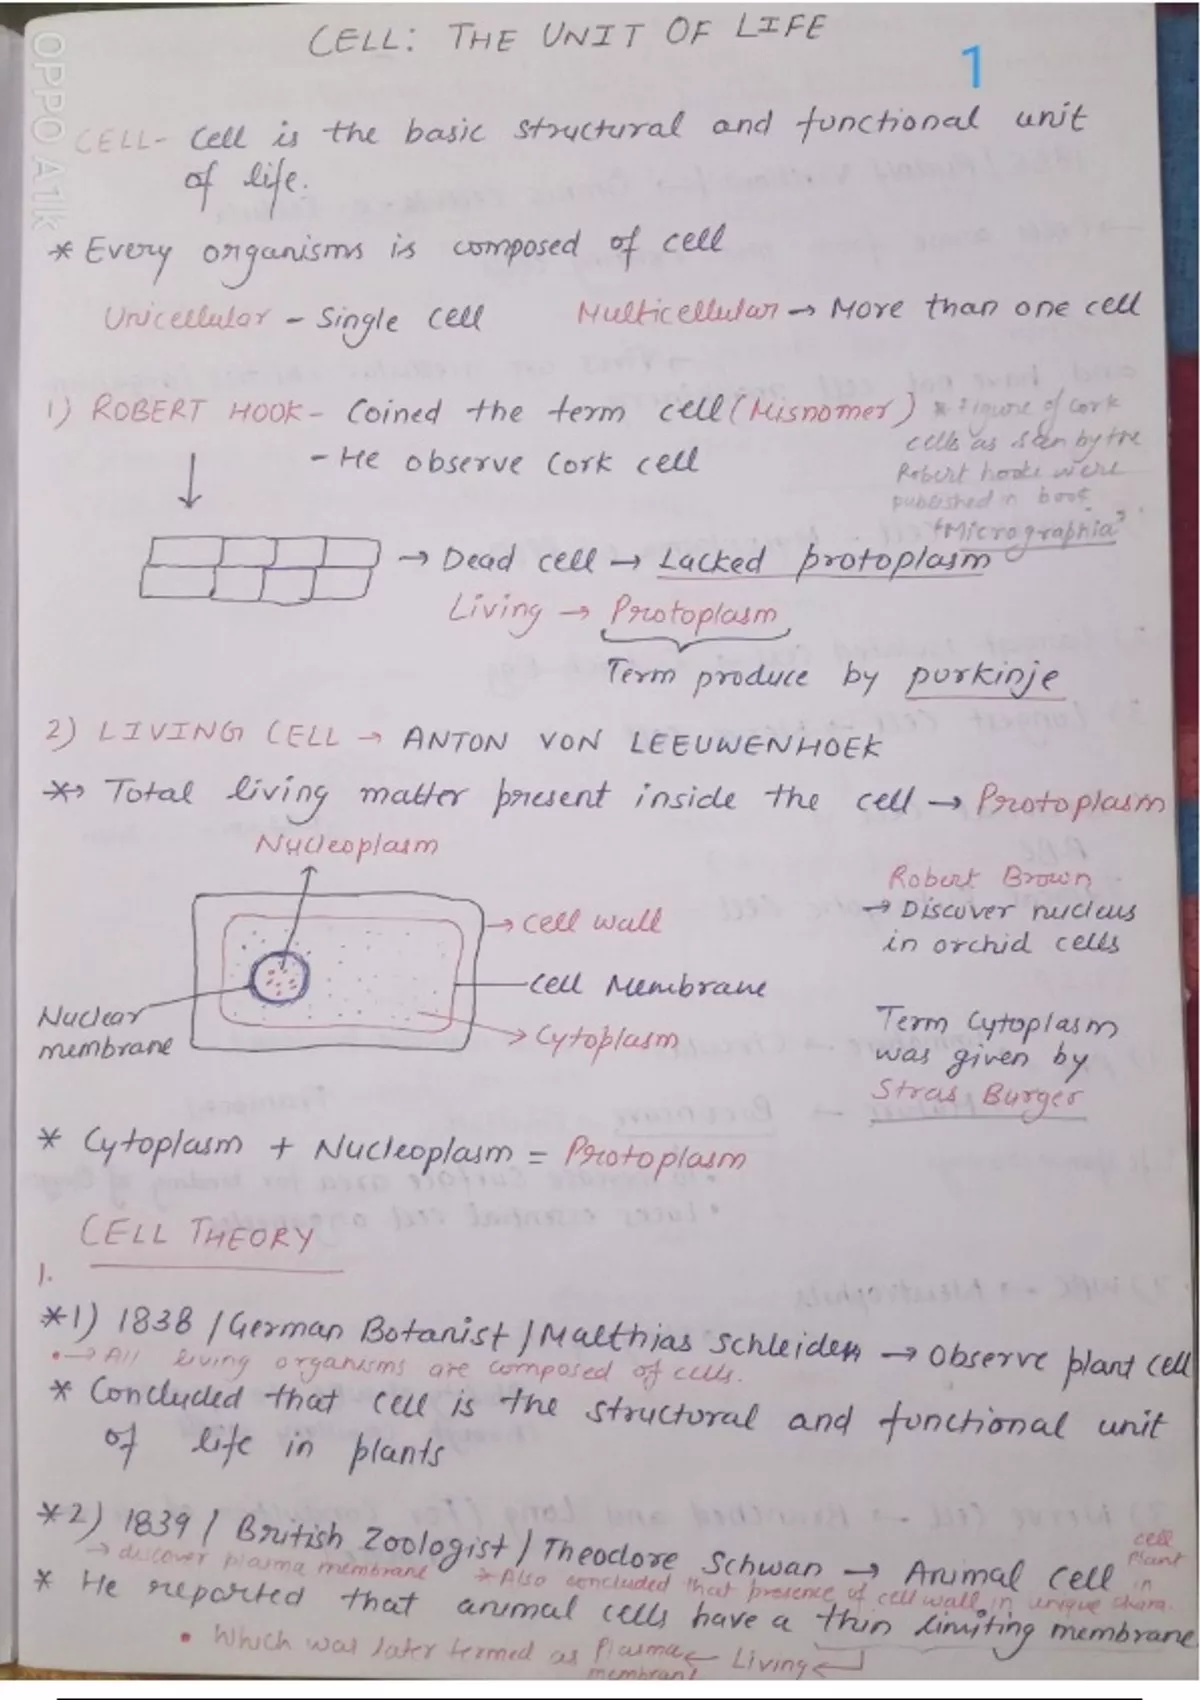 CELL: THE UNIT OF LIFE
1
OPPO A1k
CELL- Cell is the basic structural and functional unit
of life.
* Every organisms is composed of cell
Unicellular - Single cell    Multicellular → More than one cell
1) ROBERT HOOK- Coined the term cell (Misnomer)
- He observe Cork cell
* Figure of cork
cells as seen by the
Robert hooke were
published in book
"Micrographia"
→ Dead cell → Lacked protoplasm
Living → Protoplasm
Term produce by purkinje
2) LIVING CELL → ANTON VON LEEUWENHOEK
*→ Total living matter present inside the cell → Protoplasm
Nucleoplasm
→ Cell wall
Cell Membrane
→ Cytoplasm
Nuclear
membrane
Robert Brown
→ Discover nucleus
in orchid cells
Term Cytoplasm
was given by
Stras Burger
* Cytoplasm + Nucleoplasm = Protoplasm
CELL THEORY
1.
*1) 1838 / German Botanist / Matthias Schleiden → Observe plant cell
• → All living organisms are composed of cells.
* Concluded that cell is the structural and functional unit
of life in plants
*2) 1839 / British Zoologist / Theodore Schwan → Animal cell
→ discover plasma membrane * Also concluded that presence of cell wall in unique chara. in plant cell
* He reported that animal cells have a thin limiting membrane
• Which was later termed as Plasma membrane ← Living ←